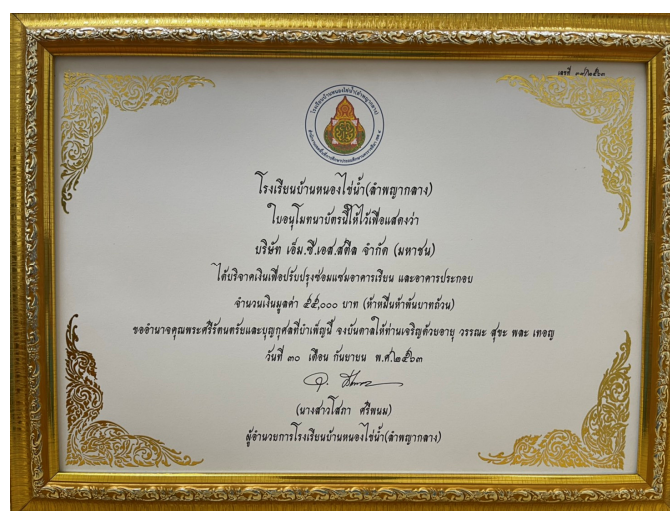 เลขที่ ๓๗/๒๕๖๓
โรงเรียนบ้านหนองไข่น้ำ(ลำพญากลาง)
ใบอนุโมทนาบัตรนี้ให้ไว้เพื่อแสดงว่า
บริษัท เอ็ม.ซี.เอส.สตีล จำกัด (มหาชน)
ได้บริจาคเงินเพื่อปรับปรุงซ่อมแซมอาคารเรียน และอาคารประกอบ
จำนวนเงินมูลค่า ๕๕,๐๐๐ บาท (ห้าหมื่นห้าพันบาทถ้วน)
ขออำนาจคุณพระศรีรัตนตรัยและบุญกุศลที่บำเพ็ญนี้ จงบันดาลให้ท่านเจริญด้วยอายุ วรรณะ สุขะ พละ เทอญ
วันที่ ๓๐ เดือน กันยายน พ.ศ.๒๕๖๓
(นางสาวโสภา ศรีพนม)
ผู้อำนวยการโรงเรียนบ้านหนองไข่น้ำ(ลำพญากลาง)